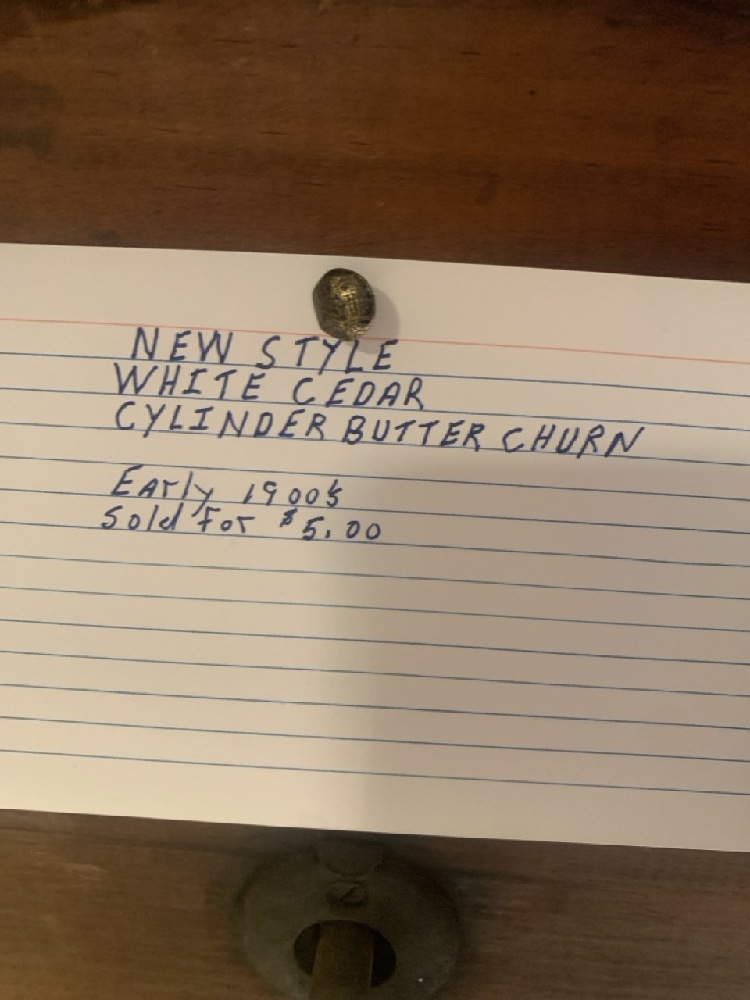 NEW STYLE
WHITE CEDAR
CYLINDER BUTTER CHURN
EArly 1900's
Sold For $5.00